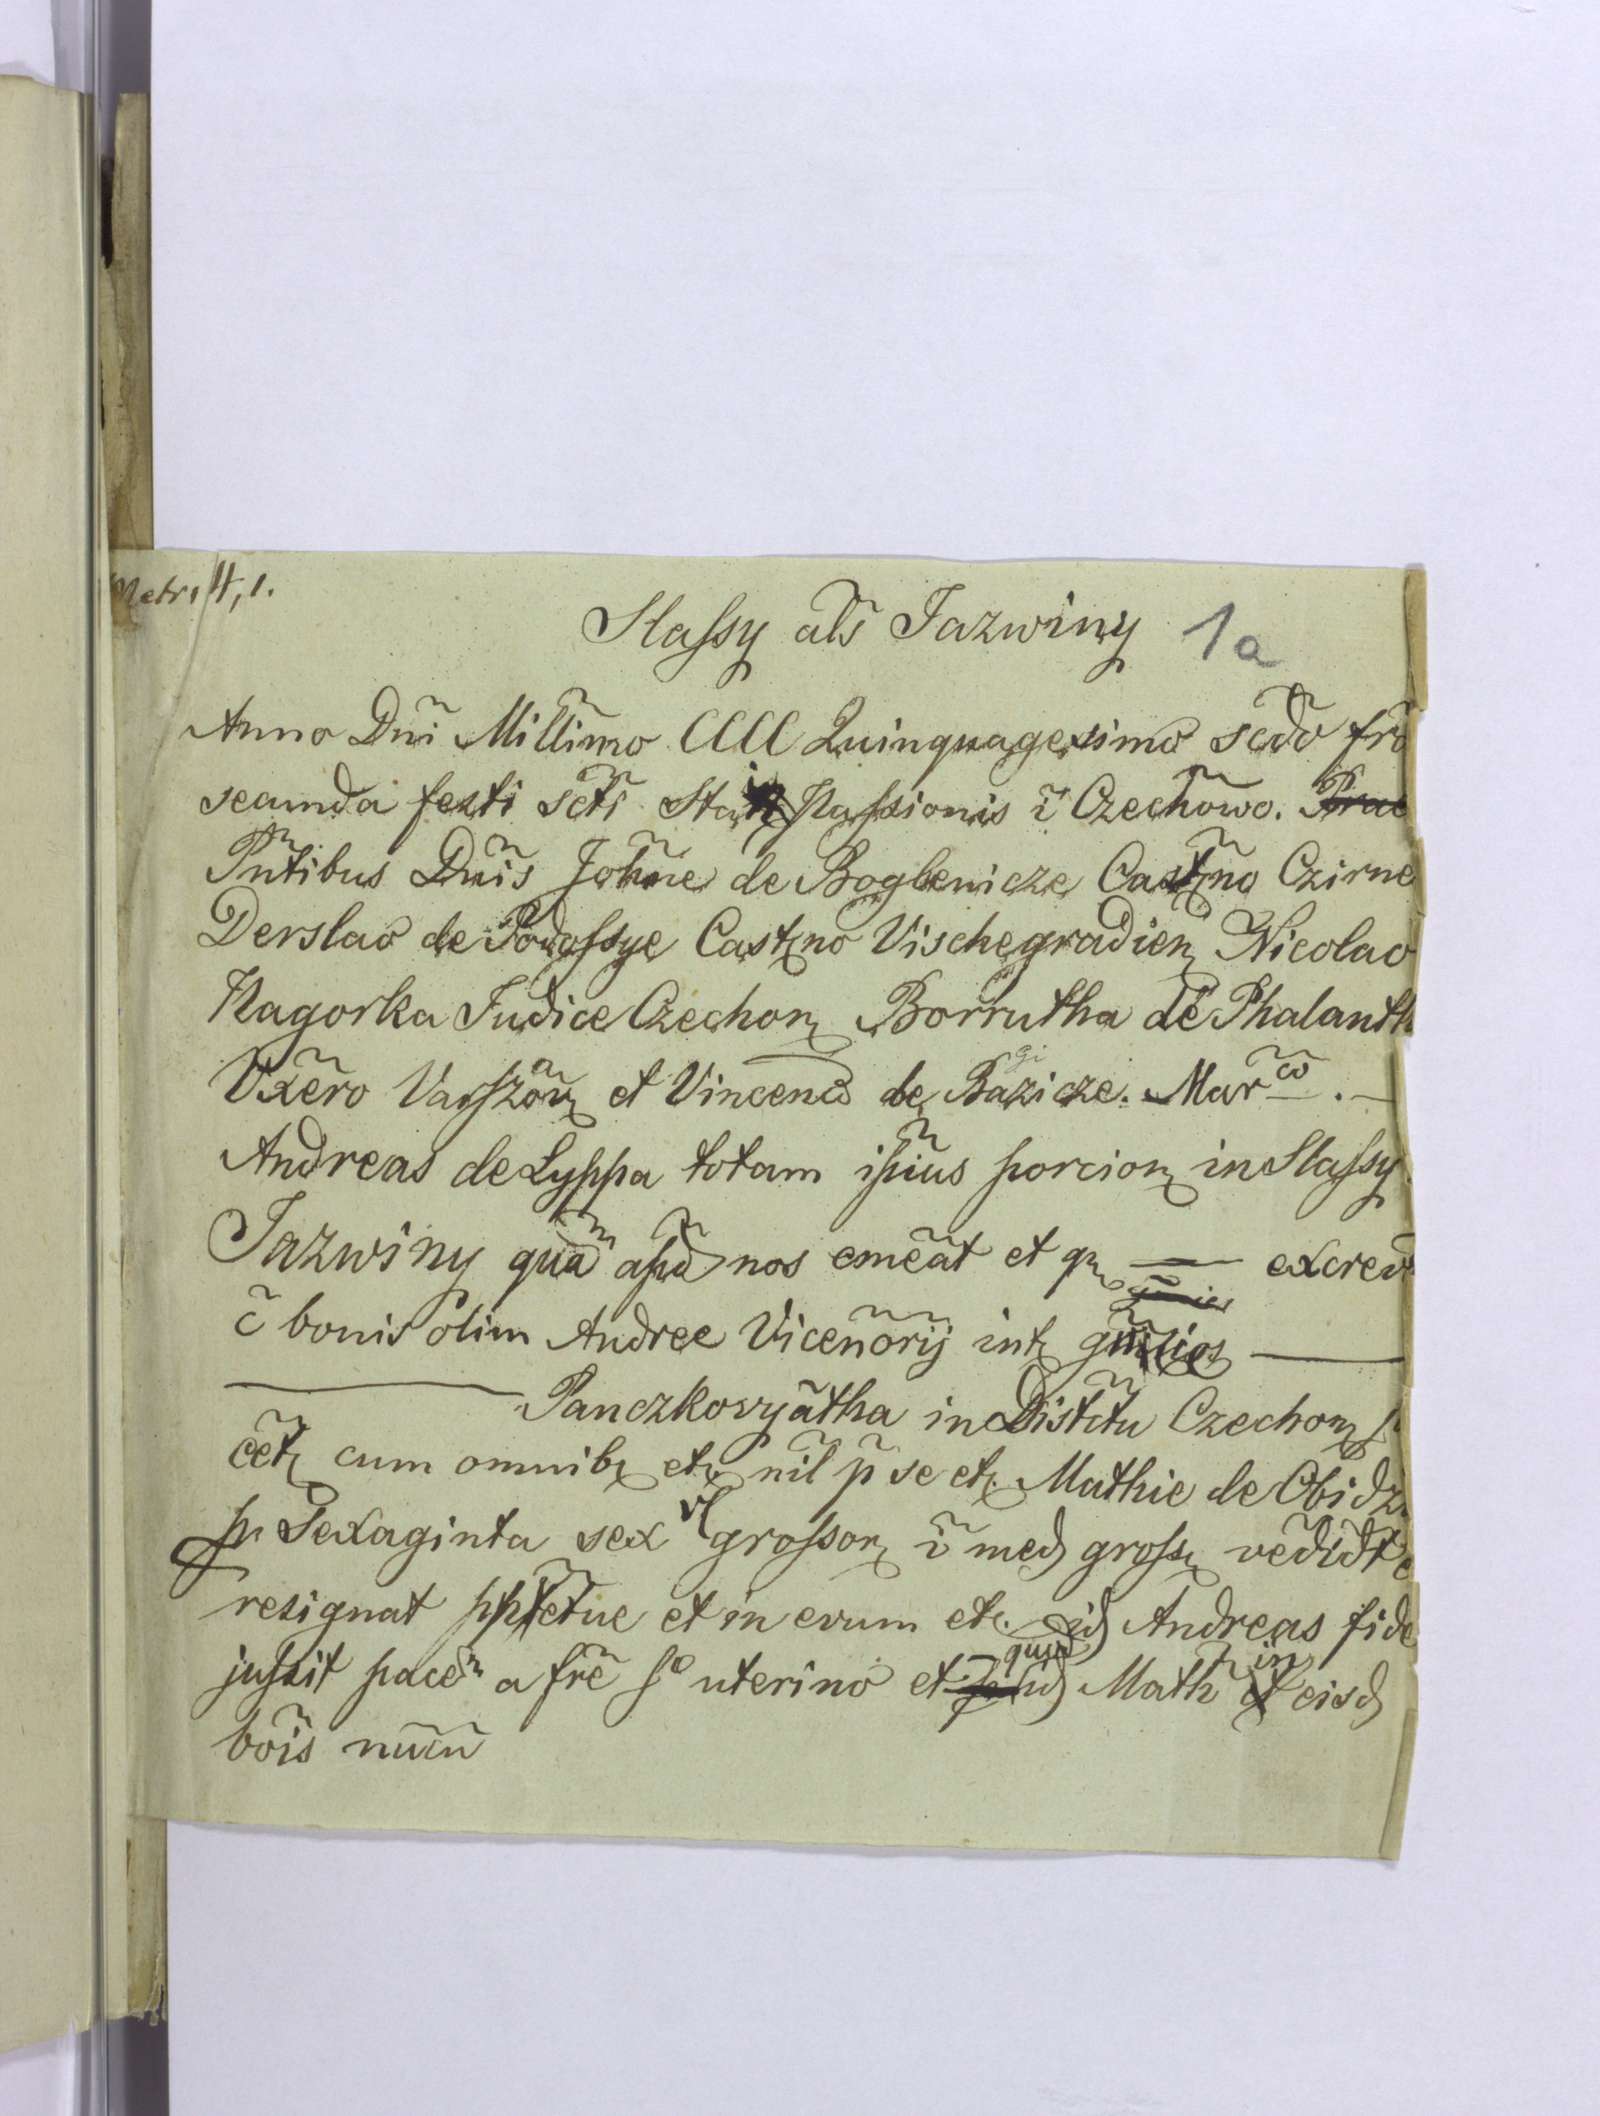 Metr. 4, 1.
Slassy als Jazwiny 1a
Anno Dni Millimo CCCC Quinquagesimo scdo fra
secunda festi scti Stanis Passionis i Czechowo.
Pntibus Dnis Johne de Boglewicze Castno Czirne
Derslao de Podossye Castno Vischegradien Nicolao
Nagorka Judice Czechon Borrutha de Phalanth
Vxero Varszon et Vincencio de Gizicze. Marco. —
Andreas de Lyppa totam ipius porcion in Slassy
Jazwiny qua apd nos emeat et q — excrevt
c bonis olim Andree Vicenorij int —
— Panczkovyatha in Distctu Czechon
cet cum omnib etc nil p se etc. Mathie de Obidz
p Sexaginta sex vl grosson i med gross vedidt
resignat ppetue et in evum etc. id Andreas fide
jussit pacem a fre so uterino et quid Math in eisd
bois nucu